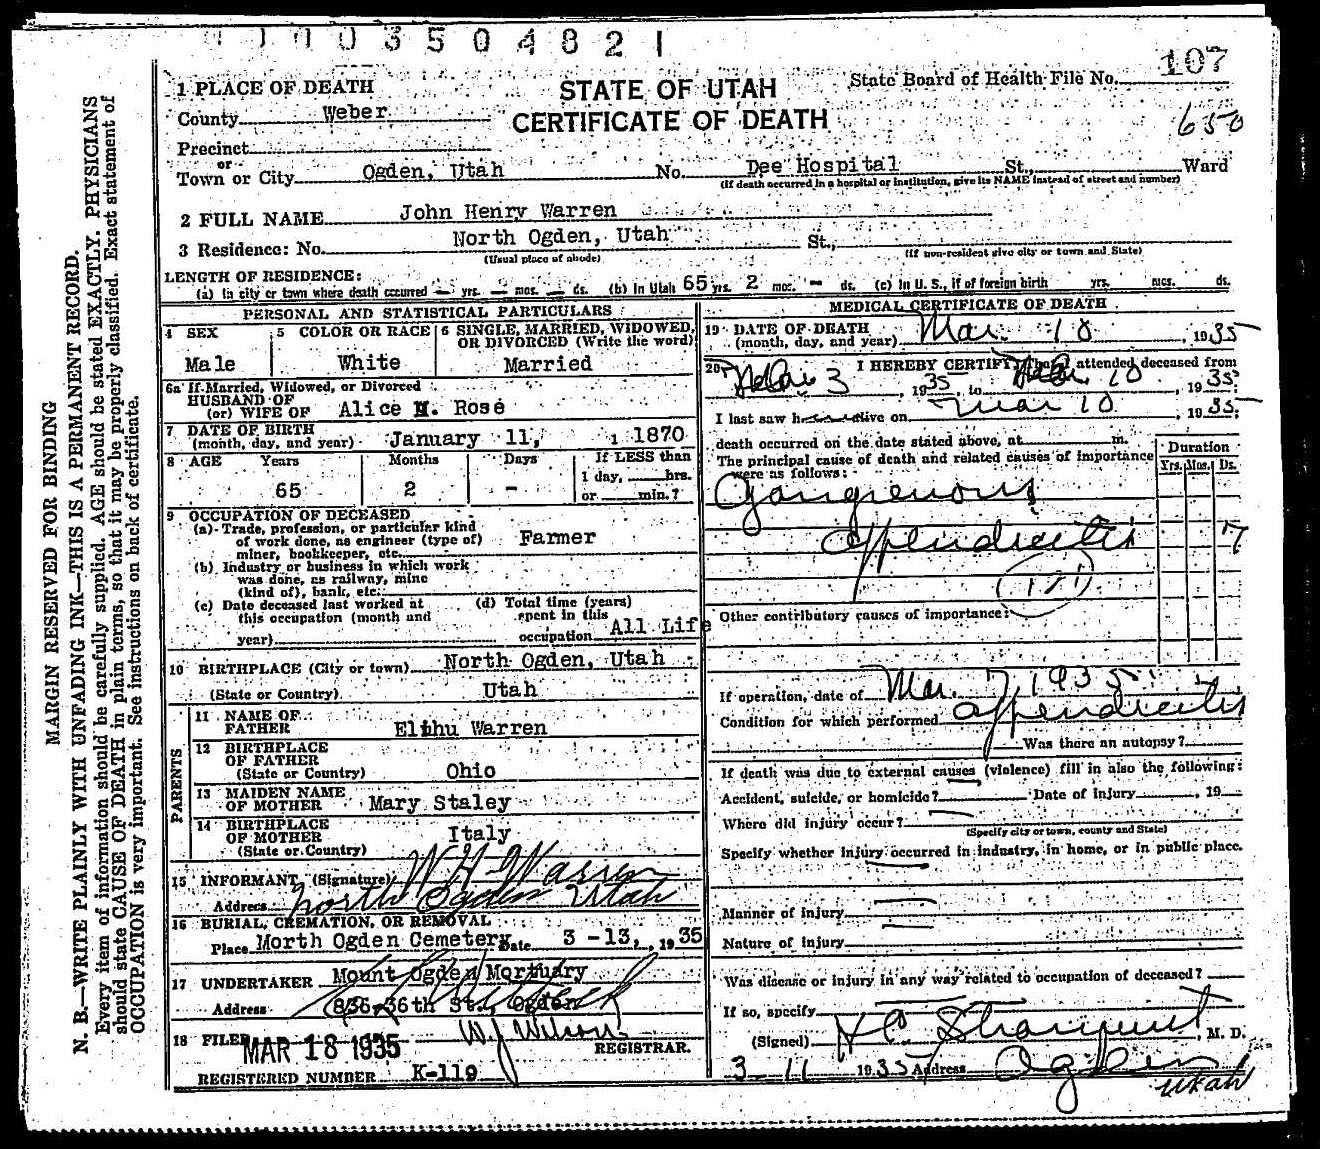 0003504821
1 PLACE OF DEATH
STATE OF UTAH
CERTIFICATE OF DEATH
State Board of Health File No. 107
650
County Weber
Precinct
or
Town or City Ogden, Utah No. Dee Hospital St., Ward
(If death occurred in a hospital or institution, give its NAME instead of street and number)
2 FULL NAME John Henry Warren
3 Residence: No. North Ogden, Utah St.,
(Usual place of abode) (If non-resident give city or town and State)
LENGTH OF RESIDENCE:
(a) In city or town where death occurred — yrs. — mos. — ds. (b) In Utah 65 yrs. 2 mos. - ds. (c) In U. S., if of foreign birth yrs. mos. ds.
PERSONAL AND STATISTICAL PARTICULARS
4 SEX
Male
5 COLOR OR RACE
White
6 SINGLE, MARRIED, WIDOWED,
OR DIVORCED (Write the word)
Married
6a If Married, Widowed, or Divorced
HUSBAND OF
(or) WIFE OF Alice M. Rose
7 DATE OF BIRTH
(month, day, and year) January 11, 1870
8 AGE Years Months Days If LESS than
1 day, hrs.
65 2 - or min.?
9 OCCUPATION OF DECEASED
(a) Trade, profession, or particular kind
of work done, as engineer (type of)
miner, bookkeeper, etc. Farmer
(b) Industry or business in which work
was done, as railway, mine
(kind of), bank, etc.
(c) Date deceased last worked at
this occupation (month and
year)
(d) Total time (years)
spent in this
occupation All Life
10 BIRTHPLACE (City or town) North Ogden, Utah
(State or Country) Utah
PARENTS
11 NAME OF
FATHER Elihu Warren
12 BIRTHPLACE
OF FATHER
(State or Country) Ohio
13 MAIDEN NAME
OF MOTHER Mary Staley
14 BIRTHPLACE
OF MOTHER
(State or Country) Italy
15 INFORMANT (Signature) W H Warren
Address North Ogden Utah
16 BURIAL, CREMATION, OR REMOVAL
Place Morth Ogden Cemetery Date 3 -13, , 1935
17 UNDERTAKER Mount Ogden Mortuary
Address 836-36th St., Ogden
18 FILED MAR 18 1935 W J Wilson
REGISTRAR.
REGISTERED NUMBER K-119
MEDICAL CERTIFICATE OF DEATH
19 DATE OF DEATH
(month, day, and year) Mar. 10 , 1935
20 I HEREBY CERTIFY, attended deceased from
3, 1935, to 10, 1935;
I last saw h alive on Mar 10, 1935;
death occurred on the date stated above, at m.
The principal cause of death and related causes of importance
were as follows:
Duration
Yrs. Mos. Ds.
Gangrenous
appendicitis 7
Other contributory causes of importance:
If operation, date of Mar. 7 1935
Condition for which performed appendicitis
Was there an autopsy?
If death was due to external causes (violence) fill in also the following:
Accident, suicide, or homicide? Date of injury , 19
Where did injury occur?
(Specify city or town, county and State)
Specify whether injury occurred in industry, in home, or in public place.
Manner of injury
Nature of injury
Was disease or injury in any way related to occupation of deceased?
If so, specify
(Signed) , M. D.
3-11 1935 Address Ogden
Utah
MARGIN RESERVED FOR BINDING
N. B.—WRITE PLAINLY WITH UNFADING INK—THIS IS A PERMANENT RECORD.
Every item of information should be carefully supplied. AGE should be stated EXACTLY. PHYSICIANS
should state CAUSE OF DEATH in plain terms, so that it may be properly classified. Exact statement of
OCCUPATION is very important. See instructions on back of certificate.